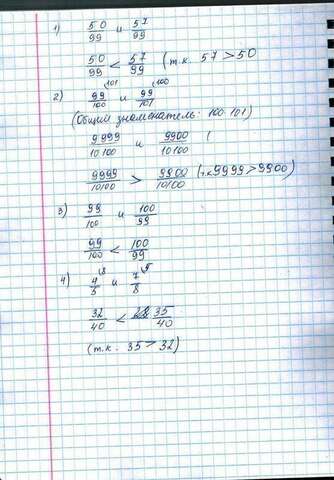 1) 50/99 и 57/99
50/99 < 57/99 (т.к. 57 > 50
2) 99/100 ^101 и 99/101 ^100
(Общий знаменатель: 100·101)
9999/10100 и 9900/10100 (
9999/10100 > 9900/10100 (т.к 9999 > 9900)
3) 99/100 и 100/99
99/100 < 100/99
4) 4/5 ^8 и 7/8 ^5
32/40 < 35/40
(т.к. 35 > 32)